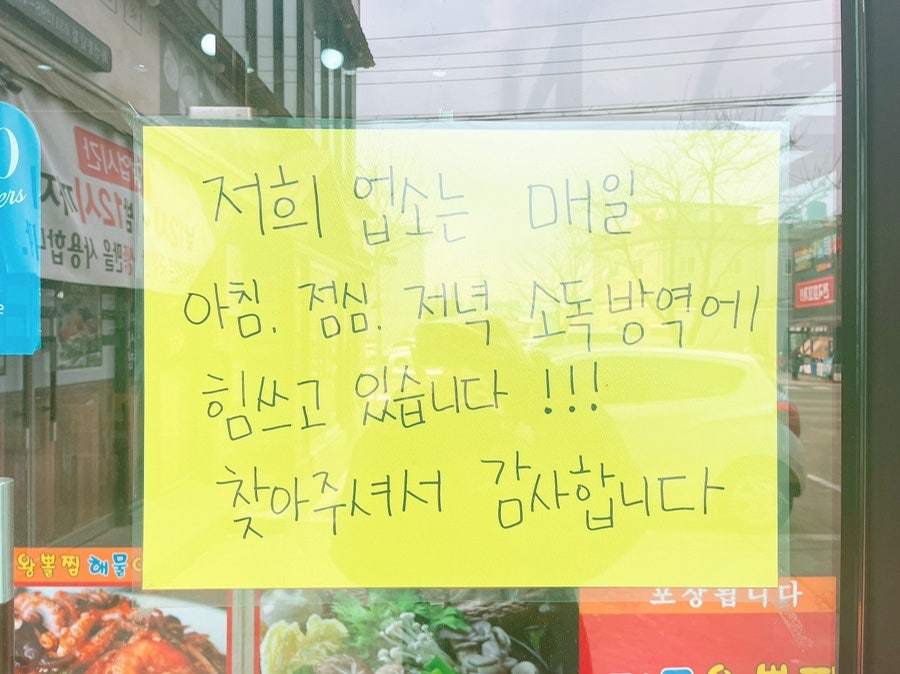 저희 업소는 매일
아침. 점심. 저녁 소독방역에
힘쓰고 있습니다 !!!
찾아주셔서 감사합니다
왕뽈찜 해물
포장됩니다